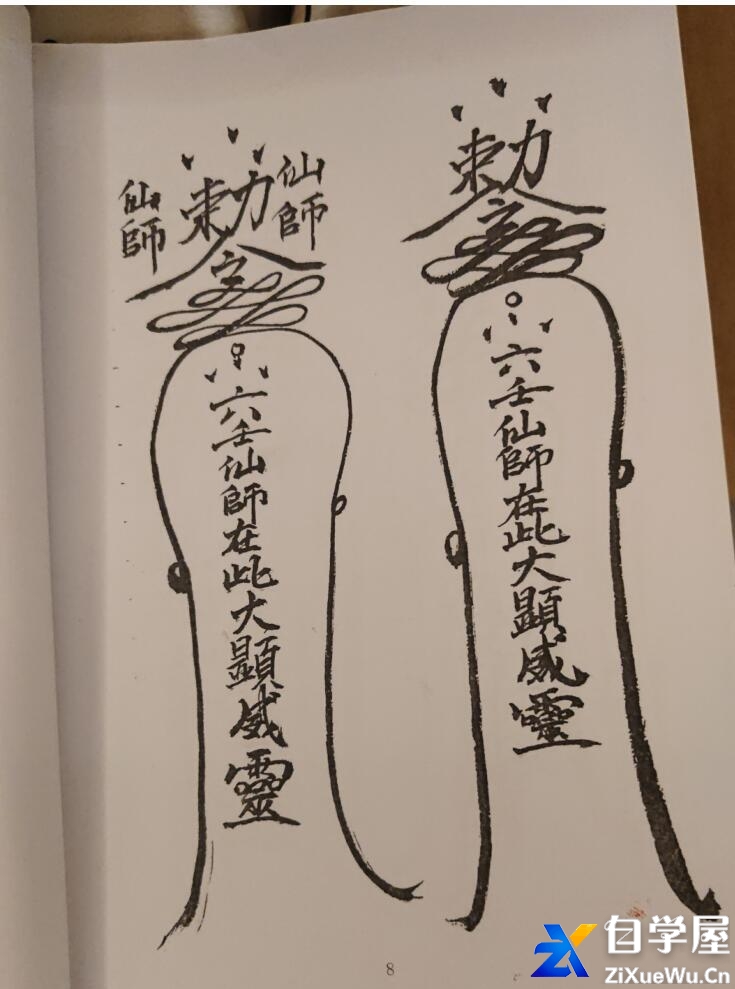 仙師
勅令
仙師
六壬仙師在此大顯威靈
勅令
六壬仙師在此大顯威靈
8
自学屋
ZiXueWu.Cn